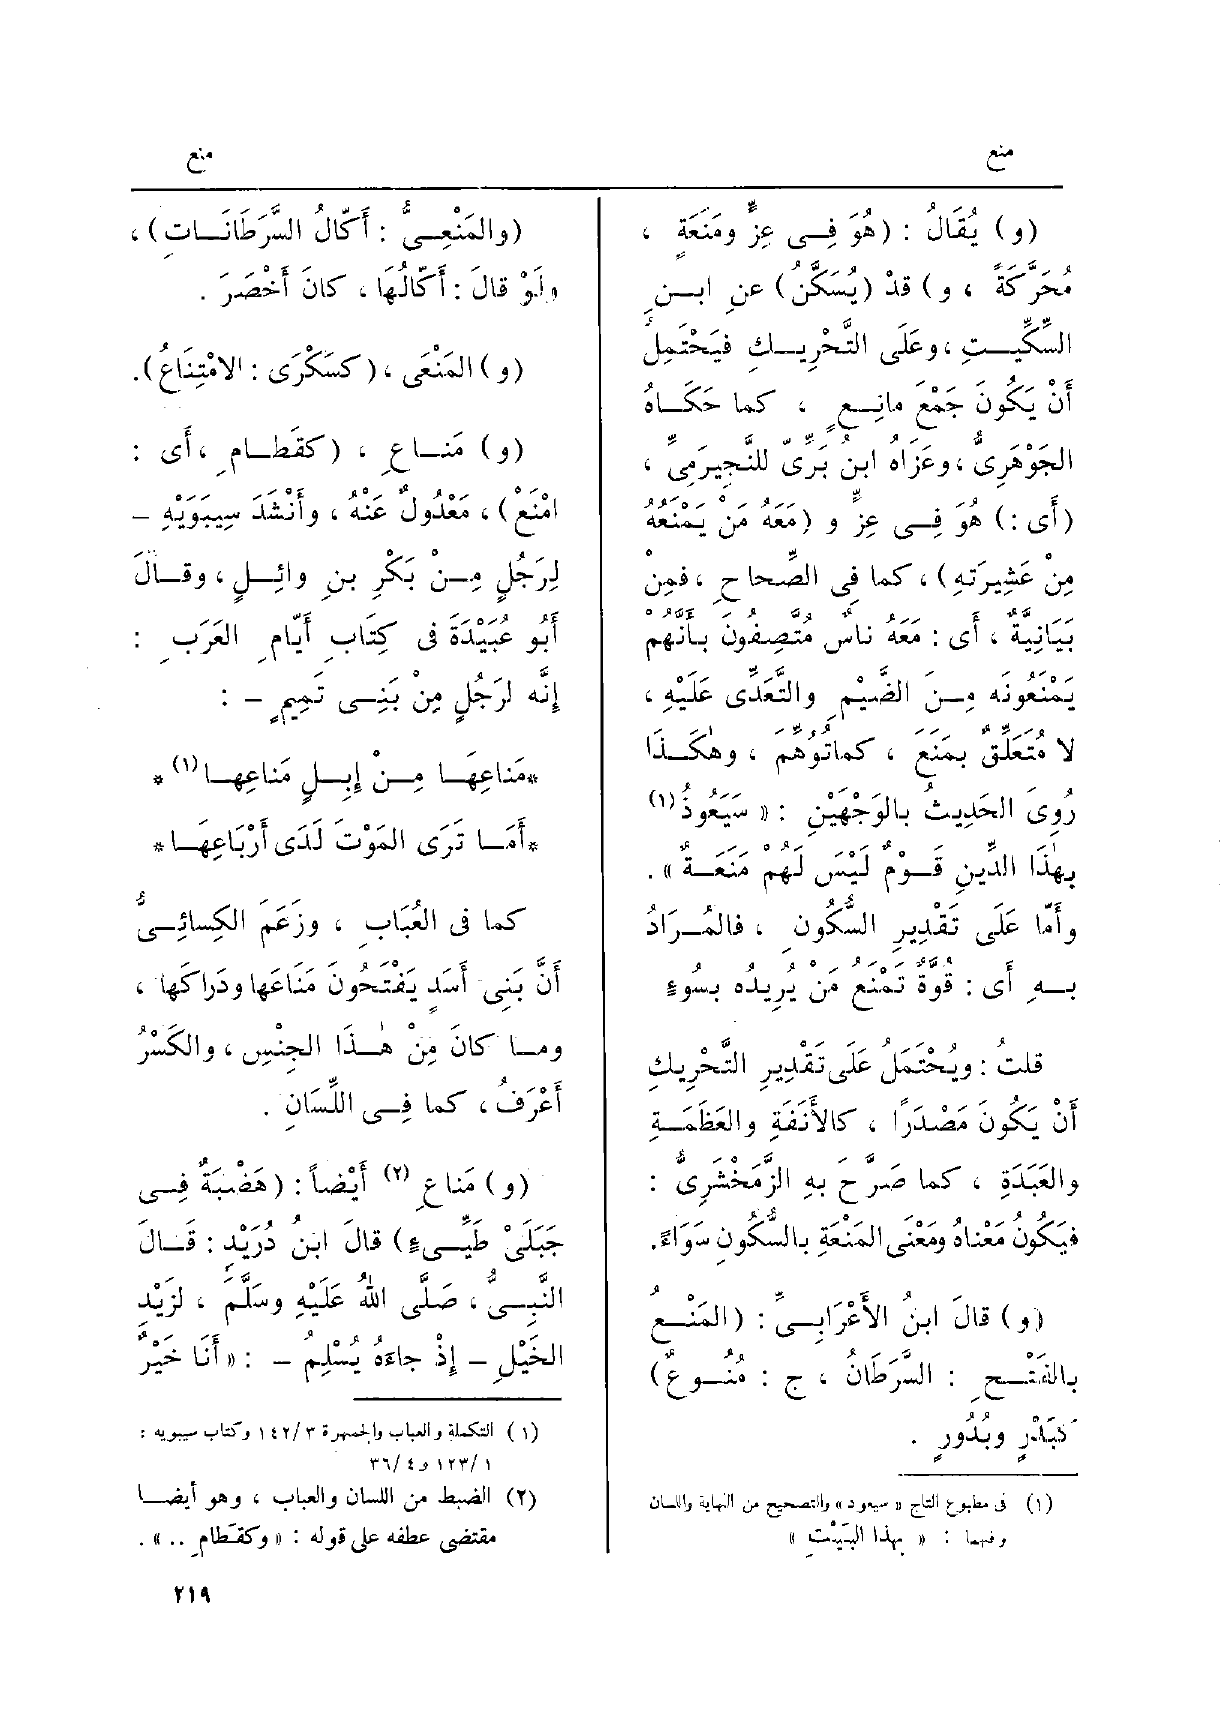 منع
منع
(و) يُقَالُ : (هُوَ فِـى عِزٍّ ومَنَعَةٍ ،
مُحَرَّكَةً ، و) قدْ (يُسَكَّنُ) عن ابـنِ
السِّكِّيـتِ ، وعَلَى التَّحْرِيـكِ فيَحْتَمِلُ
أَنْ يَكُونَ جَمْعَ مانِـعٍ ، كما حَكَـاهُ
الجَوْهَرِىُّ ، وعَزَاه ابنُ بَرِّىّ للنَّجِيرَمِىِّ ،
(أَى :) هُوَ فِـى عِزٍّ و (مَعَهُ مَنْ يَمْنَعُهُ
مِنْ عَشِيرَتهِ) ، كما فِى الصِّحاحِ ، فمِن
بَيَانِيَّةٌ ، أَى : مَعَهُ ناسٌ مُتَّصِفُونَ بـأَنَّهُمْ
يَمْنَعُونَه مِـنَ الضَّيْمِ والتَّعَدِّى عَلَيْهِ ،
لا مُتَعَلِّقٌ بمَنَعَ ، كما تُوُهِّمَ ، وهٰكَـذَا
رُوِىَ الحَدِيثُ بالوَجْهَيْنِ : « سَيَعُوذُ (١)
بِهٰذَا الدِّينِ قَـوْمٌ لَيْسَ لَهُمْ مَنَعَـةٌ » .
وأَمّا عَلَى تَقْدِيرِ السُّكُونِ ، فالمُـرَادُ
بـهِ أَى : قُوَّةٌ تَمْنَعُ مَنْ يُرِيدُه بسُوءٍ
قلتُ : ويُحْتَمَلُ عَلَى تَقْدِيرِ التَّحْرِيكِ
أَنْ يَكُونَ مَصْدَرًا ، كالأَنَفَةِ والعَظَمَـةِ
والعَبَدَةِ ، كما صَرَّحَ بهِ الزَّمَخْشَرِىُّ :
فيَكُونُ مَعْناهُ ومَعْنَى المَنْعَةِ بالسُّكُونِ سَوَاءً.
(و) قالَ ابنُ الأَعْرَابِـىِّ : (المَنْـعُ
بالفَتْـحِ : السَّرَطَانُ ، ج : مُنُـوعٌ)
كبَدْرٍ وبُدُورٍ .
(١) فى مطبوع التاج « سيعود » والتصحيح من النهاية واللسان
وفيهما : « بهذا البَيْتِ »
(والمَنْعِـىُّ : أَكّالُ السَّرَطَانَـاتِ) ،
ولَوْ قالَ : أَكّالُهَا ، كانَ أَخْصَرَ .
(و) المَنْعَى ، (كسَكْرَى : الامْتِنَاعُ).
(و) مَنـاعِ ، (كقَطـامِ ، أَى :
امْنَعْ) ، مَعْدُولٌ عَنْهُ ، وأَنْشَدَ سِيبَوَيْهِ –
لِرَجُلٍ مِـنْ بَكْرِ بنِ وائِـلٍ ، وقـالَ
أَبُو عُبَيْدَةَ فى كِتَابِ أَيّامِ العَرَبِ :
إنَّه لرَجُلٍ مِنْ بَنِـى تَمِيمٍ – :
*مَناعِهَـا مِـنْ إِبِـلٍ مَناعِهـا (١) *
*أَمَـا تَرَى المَوْتَ لَدَى أَرْبَاعِهَـا*
كما فى العُبَابِ ، وزَعَمَ الكِسائِـىُّ
أَنَّ بَنِى أَسَدٍ يَفْتَحُونَ مَناعَها ودَراكَها ،
ومـا كانَ مِنْ هٰـذَا الجِنْسِ ، والكَسْرُ
أَعْرَفُ ، كما فِـى اللِّسَانِ .
(و) مَناعِ (٢) أَيْضاً : (هَضْبَةٌ فِـى
جَبَلَىْ طَيِّـىءٍ) قالَ ابنُ دُرَيْدٍ : قَـالَ
النَّبِـىُّ ، صَلَّى اللهُ عَلَيْهِ وسَلَّمَ ، لزَيْدِ
الخَيْلِ – إِذْ جاءَهُ يُسْلِمُ – : « أَنَا خَيْرٌ
(١) التكملة والعباب والجمهرة ٣/ ١٤٢ وكتاب سيبويه :
١/ ١٢٣ و ٤/ ٣٦
(٢) الضبط من اللسان والعباب ، وهو أيضـا
مقتضى عطفه على قوله : « وكقَطامِ .. » .
٢١٩